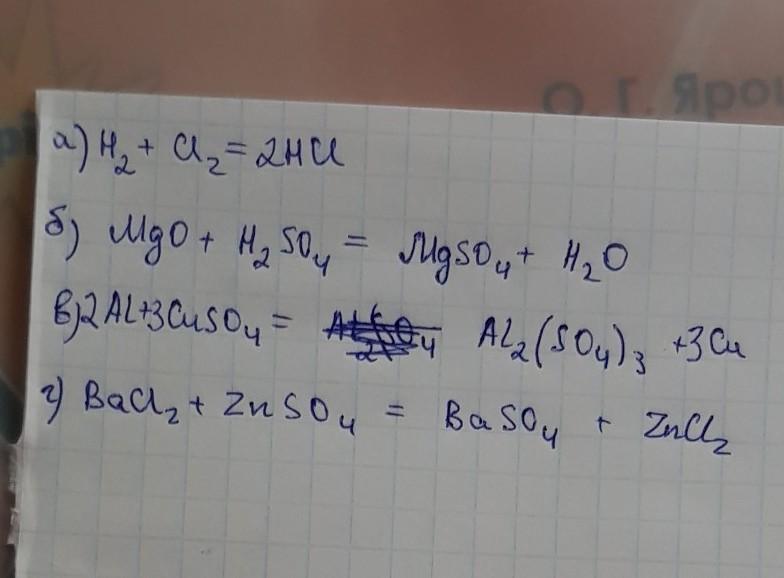 О. Г. Яро
а) H₂ + Cl₂ = 2HCl
б) MgO + H₂SO₄ = MgSO₄ + H₂O
в) 2Al + 3CuSO₄ = Al₂(SO₄)₃ + 3Cu
г) BaCl₂ + ZnSO₄ = BaSO₄ + ZnCl₂